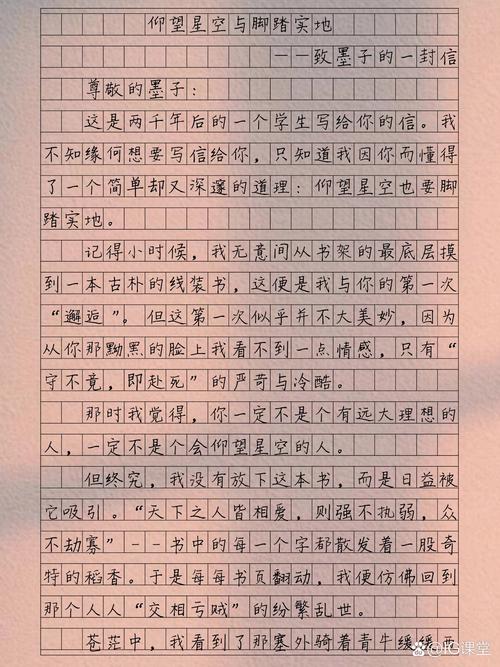 仰望星空与脚踏实地
——致墨子的一封信
尊敬的墨子：
这是两千年后的一个学生写给你的信。我
不知缘何想要写信给你，只知道我因你而懂得
了一个简单却又深邃的道理：仰望星空也要脚
踏实地。
记得小时候，我无意间从书架的最底层摸
到一本古朴的线装书，这便是我与你的第一次
“邂逅”。但这第一次似乎并不大美妙，因为
从你那黝黑的脸上我看不到一点情感，只有“
守不竟，即赴死”的严苛与冷酷。
那时我觉得，你一定不是个有远大理想的
人，一定不是个会仰望星空的人。
但终究，我没有放下这本书，而是日益被
它吸引。“天下之人皆相爱，则强不执弱，众
不劫寡”--书中的每一个字都散发着一股奇
特的稻香。于是每每书页翻动，我便仿佛回到
那个人人“交相亏贼”的纷繁乱世。
苍茫中，我看到了那塞外骑着青牛缓缓西
IG课堂